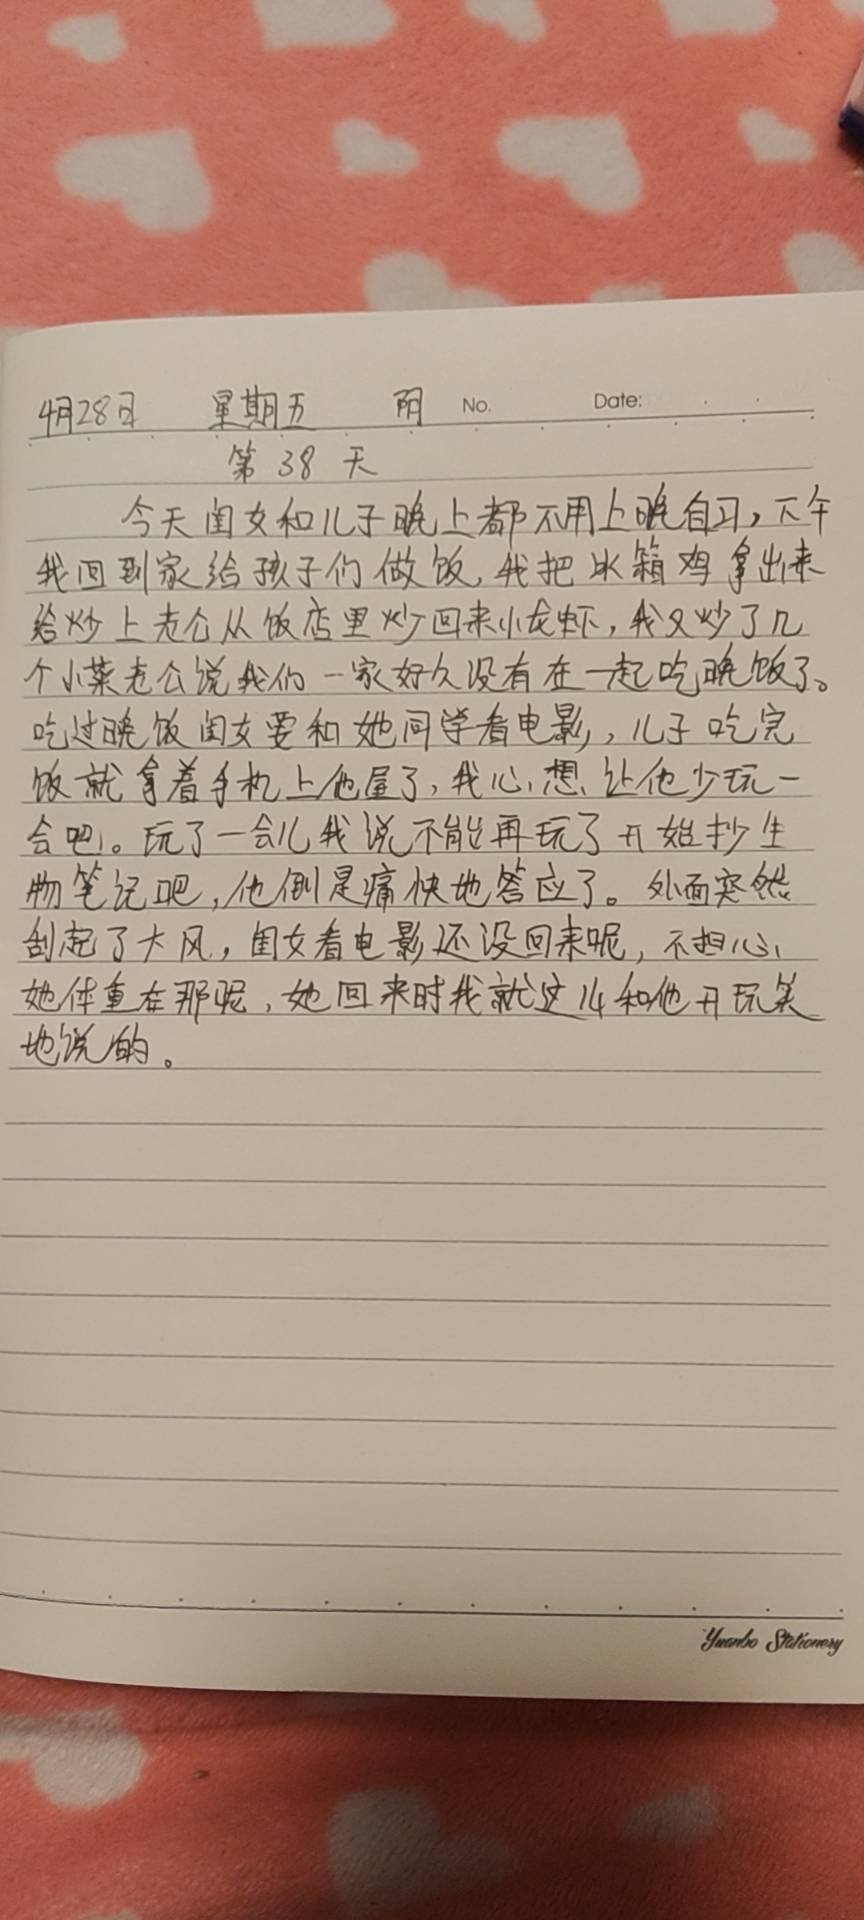 4月28日 星期五 阴 No. Date:
第 38 天
今天闺女和儿子晚上都不用上晚自习，下午
我回到家给孩子们做饭，我把冰箱鸡拿出来
给炒上老公从饭店里炒回来小龙虾，我又炒了几
个小菜老公说我们一家好久没有在一起吃晚饭了。
吃过晚饭闺女要和她同学看电影，儿子吃完
饭就拿着手机上他屋了，我心想让他少玩一
会吧。玩了一会儿我说不能再玩了开始抄生
物笔记吧，他倒是痛快地答应了。外面突然
刮起了大风，闺女看电影还没回来呢，不担心，
她体重在那呢，她回来时我就这儿和他开玩笑
地说的。
Yuanbo Stationery